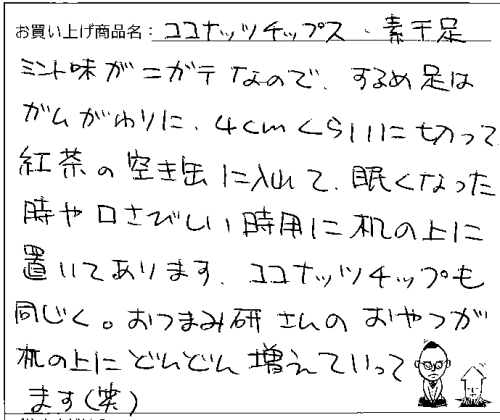 お買い上げ商品名:ココナッツチップス・素干足
ミント味がニガテなので、するめ足は
ガムがわりに、4cmくらいに切って
紅茶の空き缶に入れて、眠くなった
時や口さびしい時用に机の上に
置いてあります。ココナッツチップも
同じく。おつまみ研さんのおやつが
机の上にどんどん増えていって
ます(笑)